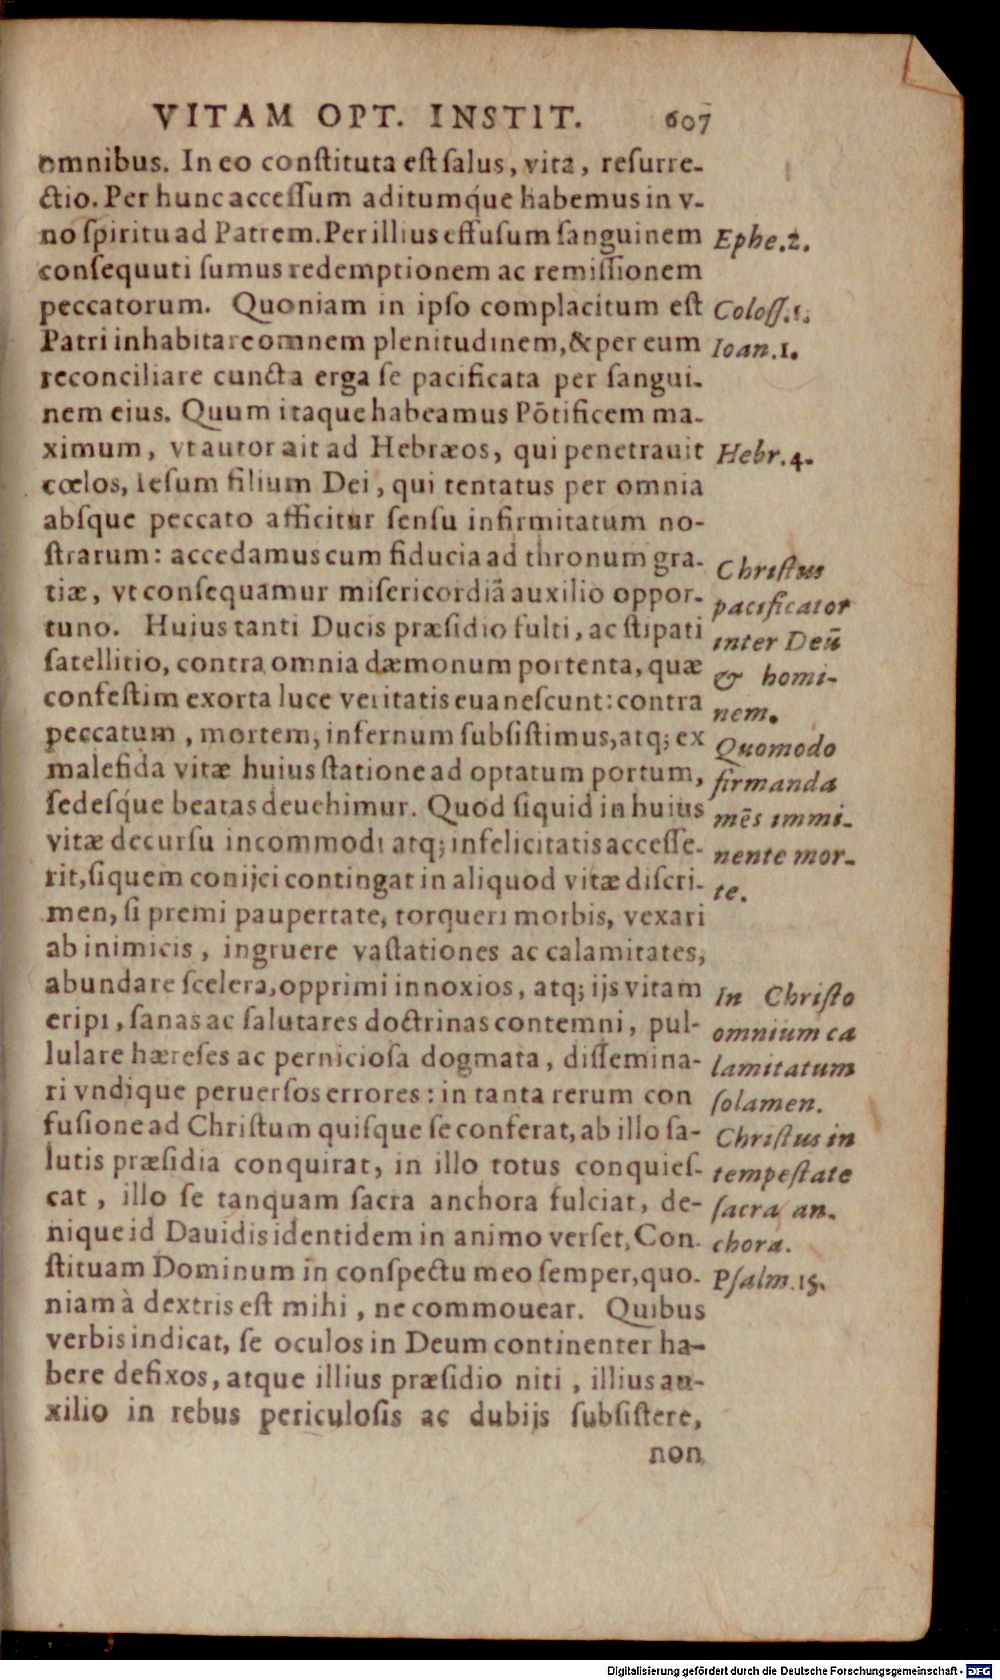 VITAM OPT. INSTIT. 607
omnibus. In eo constituta est salus, vita, resurre-
ctio. Per hunc accessum aditumq́ue habemus in v-
no spiritu ad Patrem. Per illius effusum sanguinem
Ephe.2.
consequuti sumus redemptionem ac remissionem
peccatorum. Quoniam in ipso complacitum est
Coloss.1.
Patri inhabitare omnem plenitudinem, & per eum
Ioan.1.
reconciliare cuncta erga se pacificata per sangui-
nem eius. Quum itaque habeamus Põtificem ma-
ximum, vt autor ait ad Hebræos, qui penetrauit
Hebr.4.
cœlos, Iesum filium Dei, qui tentatus per omnia
absque peccato afficitur sensu infirmitatum no-
strarum: accedamus cum fiducia ad thronum gra-
tiæ, vt consequamur misericordiã auxilio oppor-
tuno. Huius tanti Ducis præsidio fulti, ac stipati
satellitio, contra omnia dæmonum portenta, quæ
confestim exorta luce veritatis euanescunt: contra
Christus
pacificator
inter Deũ
& homi-
nem.
peccatum, mortem, infernum subsistimus, atq; ex
malefida vitæ huius statione ad optatum portum,
sedesq́ue beatas deuehimur. Quod siquid in huius
vitæ decursu incommodi atq; infelicitatis accesse-
rit, siquem conijci contingat in aliquod vitæ discri-
Quomodo
firmanda
mẽs immi-
nente mor-
te.
men, si premi paupertate, torqueri morbis, vexari
ab inimicis, ingruere vastationes ac calamitates,
abundare scelera, opprimi innoxios, atq; ijs vitam
eripi, sanas ac salutares doctrinas contemni, pul-
lulare hæreses ac perniciosa dogmata, dissemina-
ri vndique peruersos errores: in tanta rerum con
In Christo
omnium ca
lamitatum
solamen.
fusione ad Christum quisque se conferat, ab illo sa-
lutis præsidia conquirat, in illo totus conquies-
cat, illo se tanquam sacra anchora fulciat, de-
nique id Dauidis identidem in animo verset, Con-
Christus in
tempestate
sacra an-
chora.
stituam Dominum in conspectu meo semper, quo-
Psalm.15.
niam à dextris est mihi, ne commouear. Quibus
verbis indicat, se oculos in Deum continenter ha-
bere defixos, atque illius præsidio niti, illius au-
xilio in rebus periculosis ac dubijs subsistere,
non
Digitalisierung gefördert durch die Deutsche Forschungsgemeinschaft - DFG